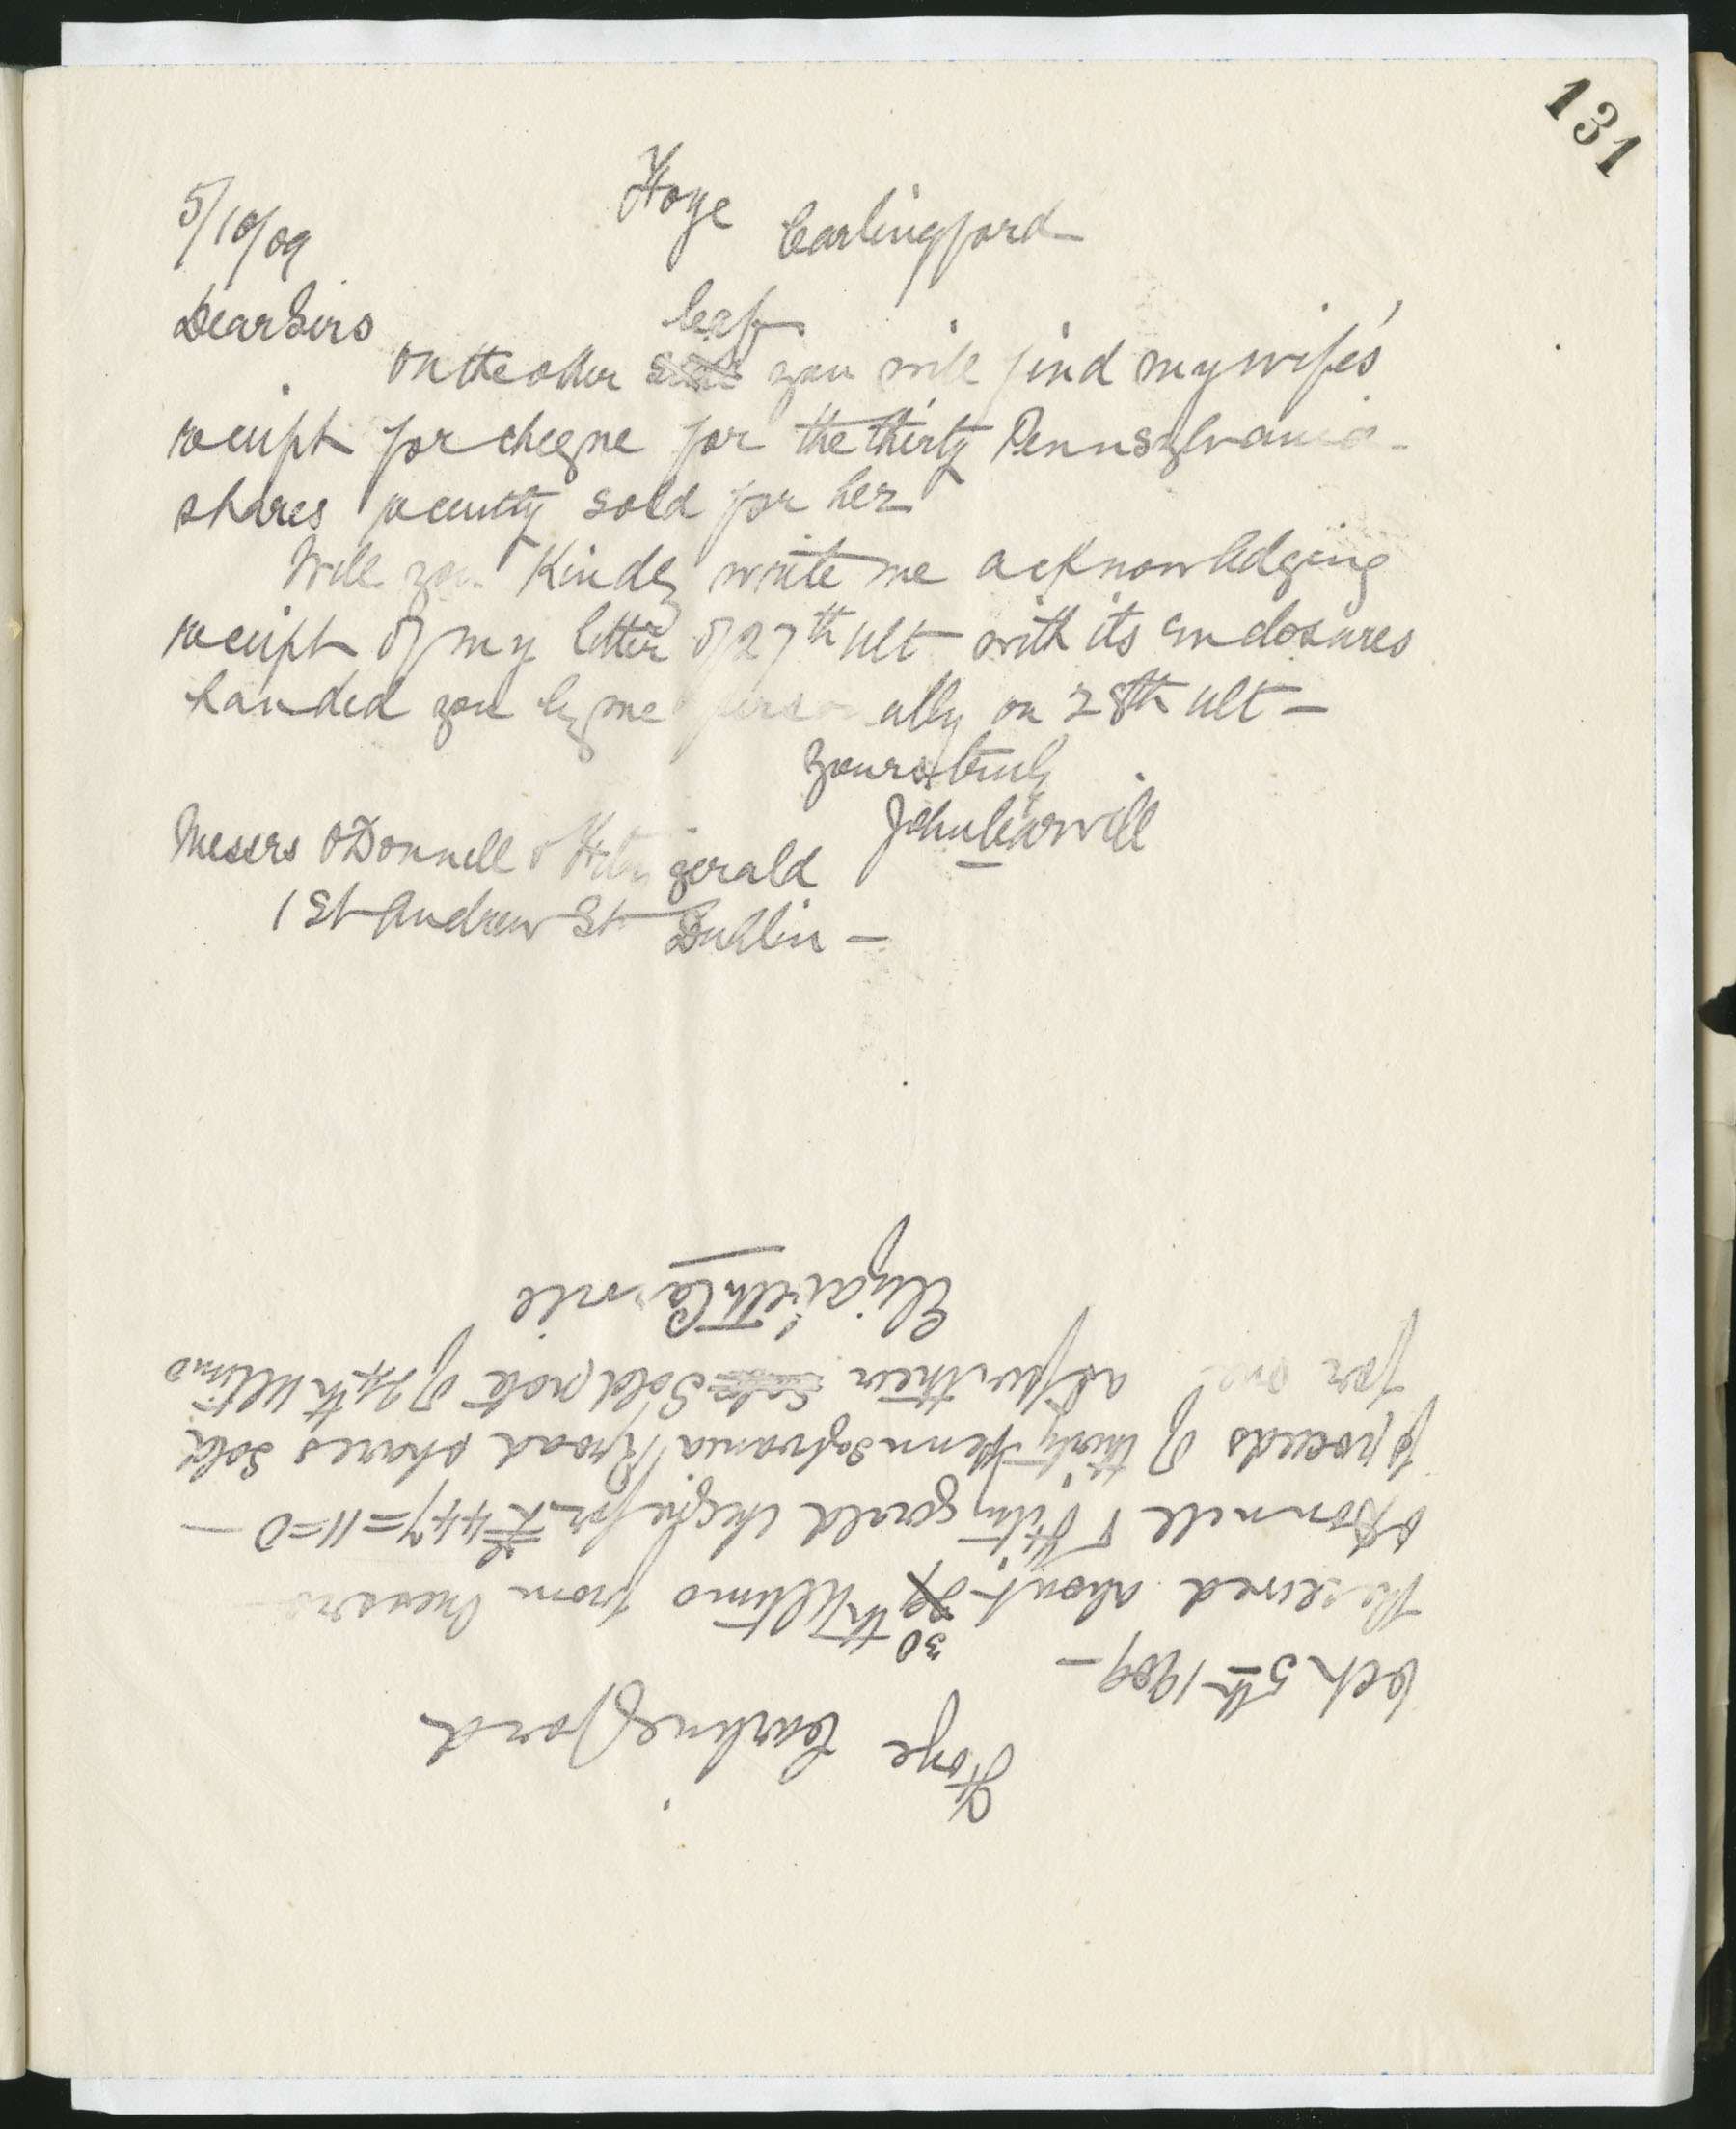 131
Foye Carlingford
5/10/09
Dear Sirs
leaf
On the other side you will find my wife's
receipt for cheque for the thirty Pennsylvania
shares recently sold for her
Will you Kindly write me acknowledging
receipt of my letter of 27th ult with its enclosures
handed you by me personally on 28th ult -
Yours truly
John Carvill
Messrs O'Donnell & Fitzgerald
1 St Andrew St Dublin -
Foye Carlingford
Oct 5th 1909 -
30
Received about 29th Ultimo from Messrs
O'Donnell & Fitzgerald cheque for £447=11=0 -
proceeds of thirty Pennsylvania Rroad shares Sold
for me as per their Sold note of 24th Ultimo
Elizabeth Carvill